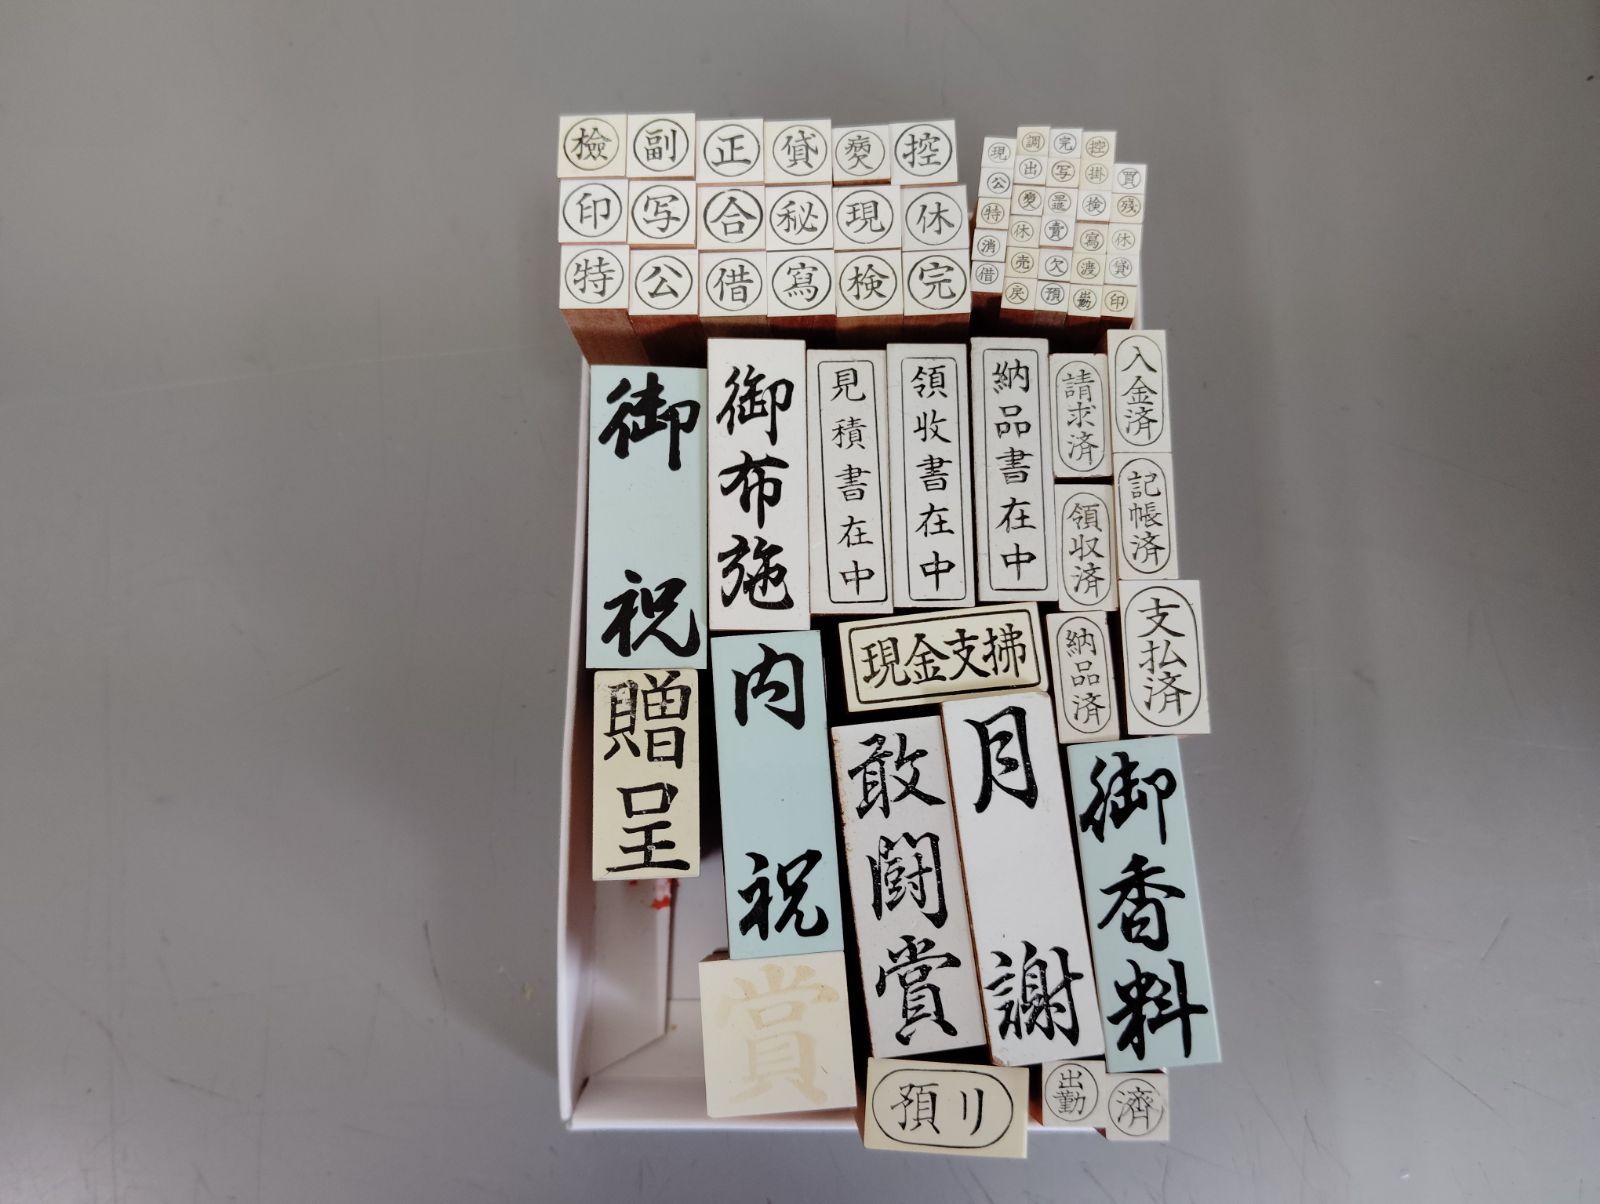 檢 副 正 貸 控
印 写 合 秘 現 休
特 公 借 寫 検 完
現 調 完 控
公 出 写 掛 買
特 検 残
消 休 賣 寫 休
借 売 欠 渡 貸
戻 預 勤 印
御祝
御布施
見積書在中
領收書在中
納品書在中
請求済
入金済
領収済
記帳済
納品済
支払済
現金支拂
贈呈
内祝
敢闘賞
月謝
御香料
賞
預リ
出勤
濟